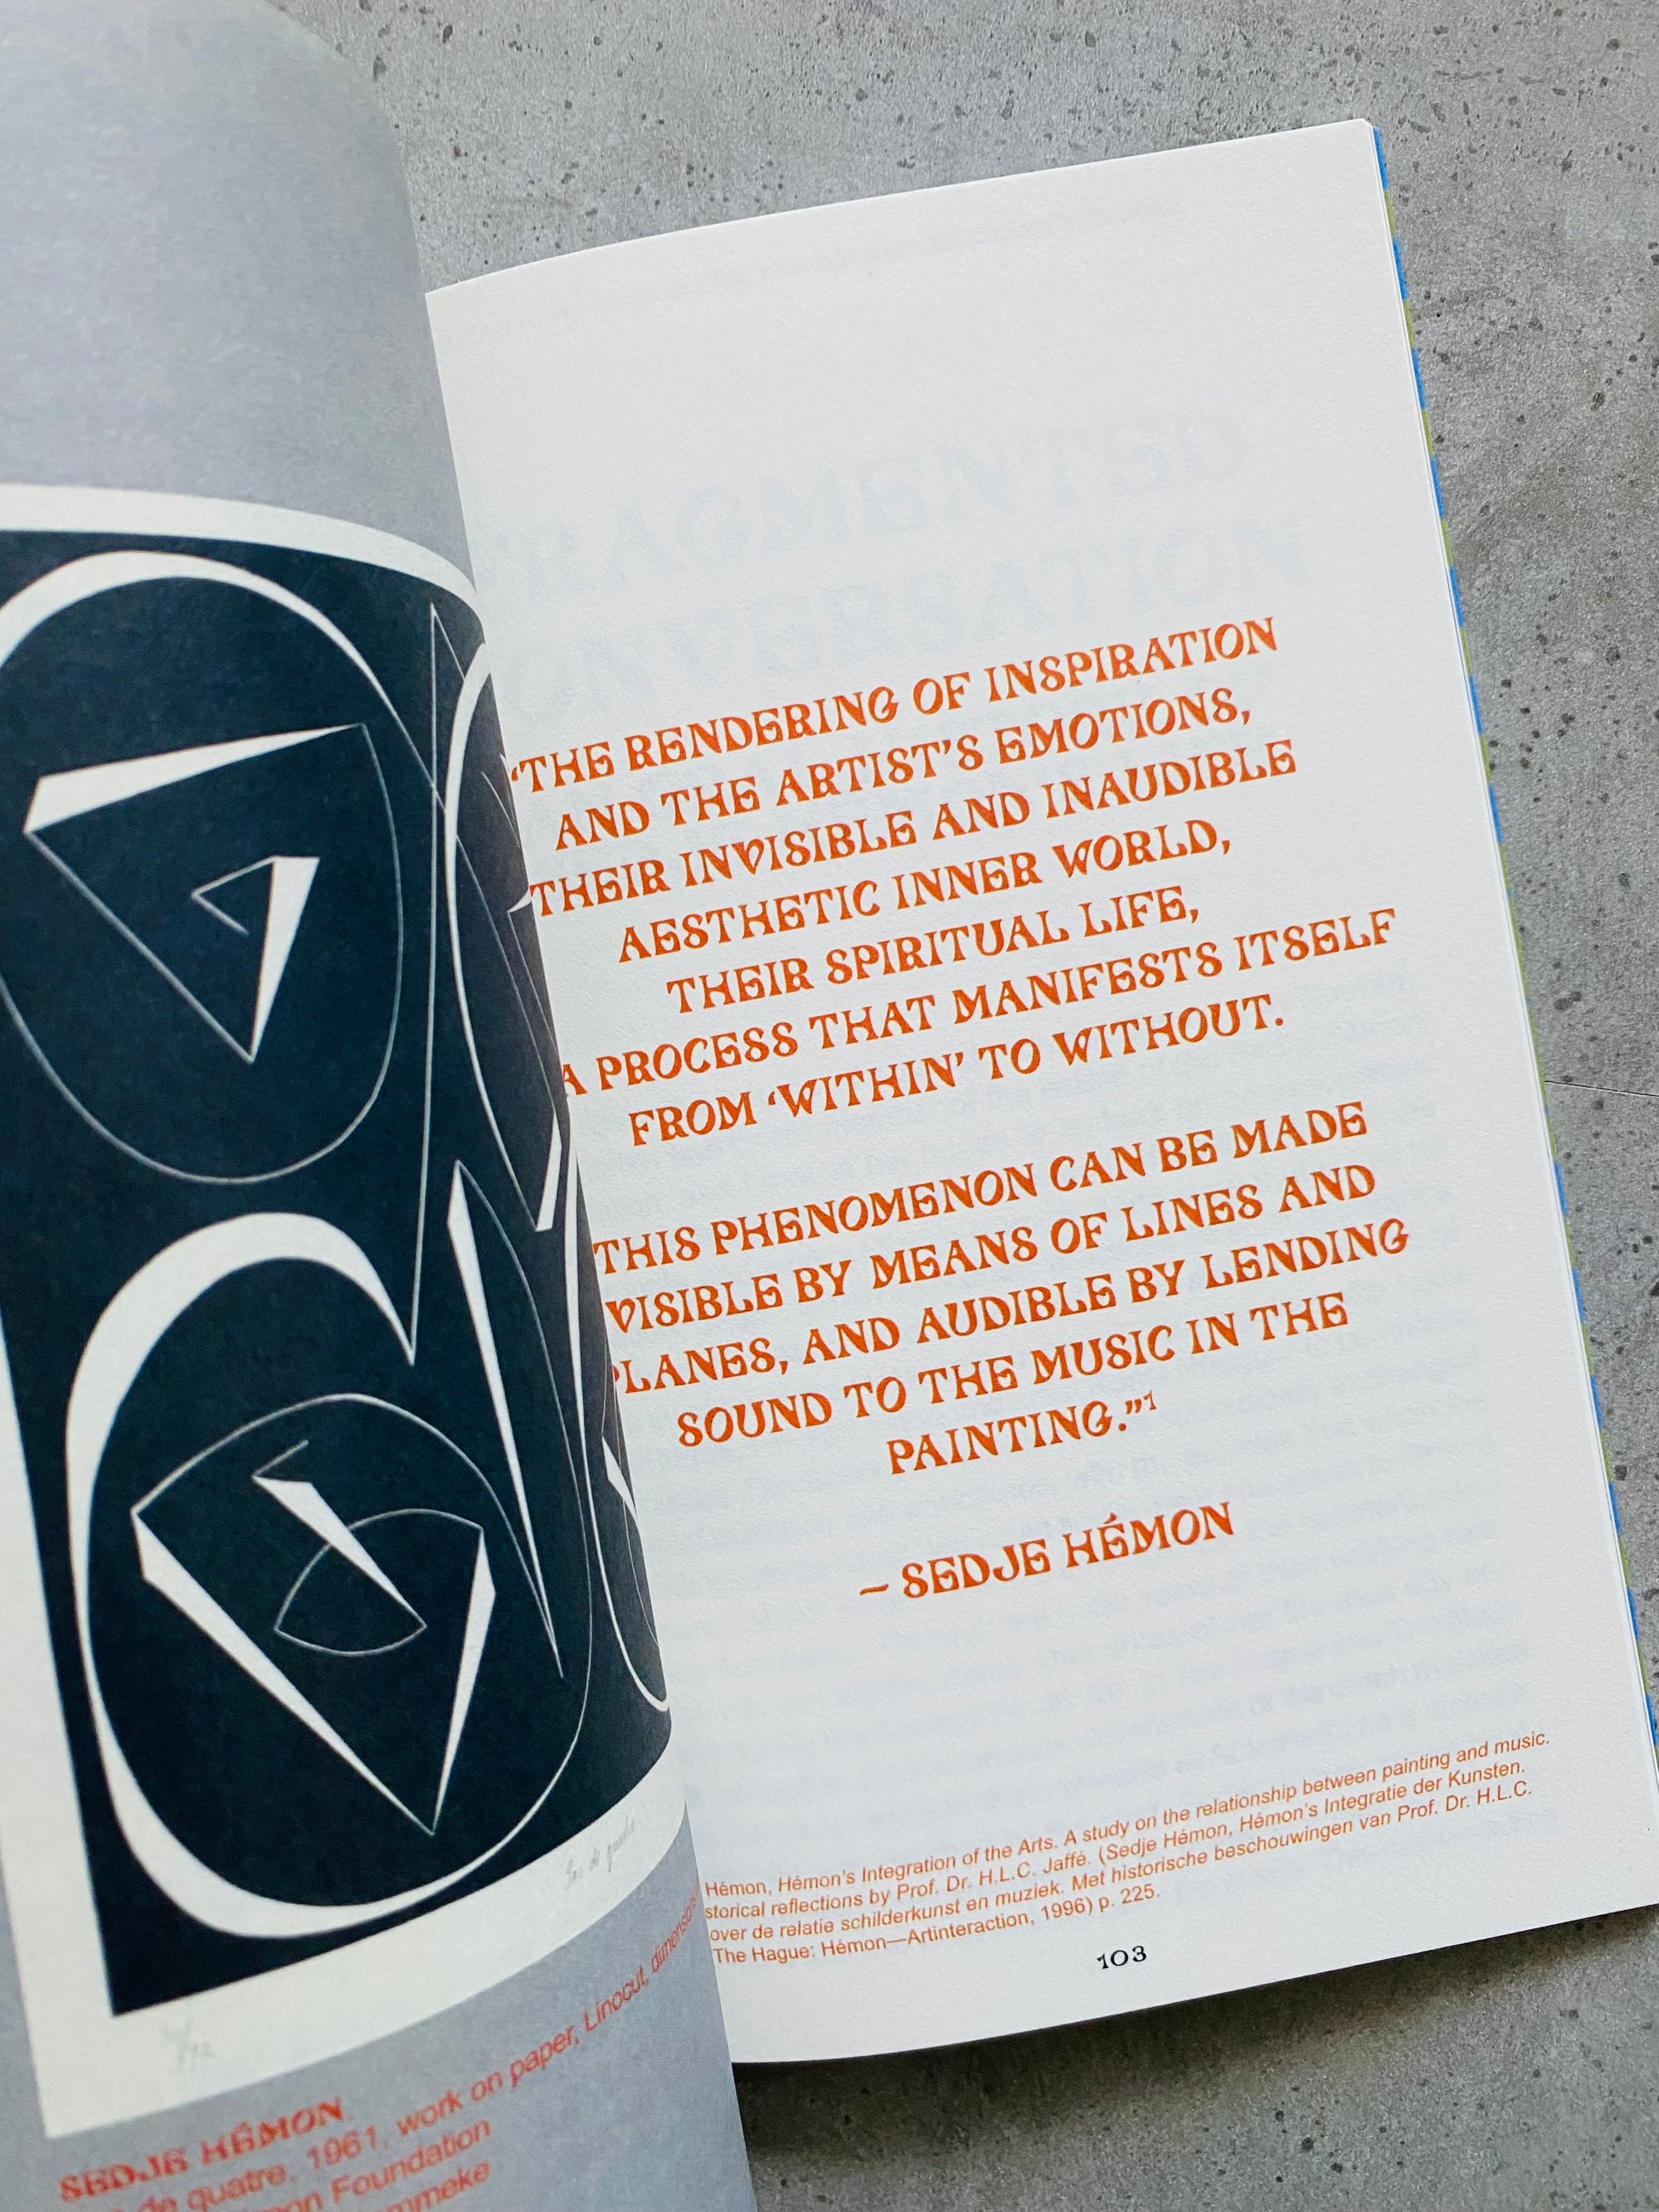 “THE RENDERING OF INSPIRATION
AND THE ARTIST’S EMOTIONS,
THEIR INVISIBLE AND INAUDIBLE
AESTHETIC INNER WORLD,
THEIR SPIRITUAL LIFE,
A PROCESS THAT MANIFESTS ITSELF
FROM ‘WITHIN’ TO WITHOUT.
THIS PHENOMENON CAN BE MADE
VISIBLE BY MEANS OF LINES AND
PLANES, AND AUDIBLE BY LENDING
SOUND TO THE MUSIC IN THE
PAINTING.”1
– SEDJE HÉMON
Hémon, Hémon’s Integration of the Arts. A study on the relationship between painting and music.
storical reflections by Prof. Dr. H.L.C. Jaffé. (Sedje Hémon, Hémon’s Integratie der Kunsten.
over de relatie schilderkunst en muziek. Met historische beschouwingen van Prof. Dr. H.L.C.
The Hague: Hémon—Artinteraction, 1996) p. 225.
103
SEDJE HÉMON
de quatre, 1961, work on paper, Linocut, dimensions
mon Foundation
mmeke